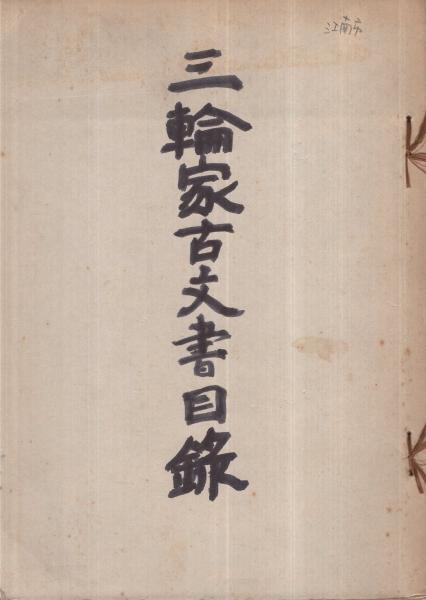 三輪家古文書目録
江南市